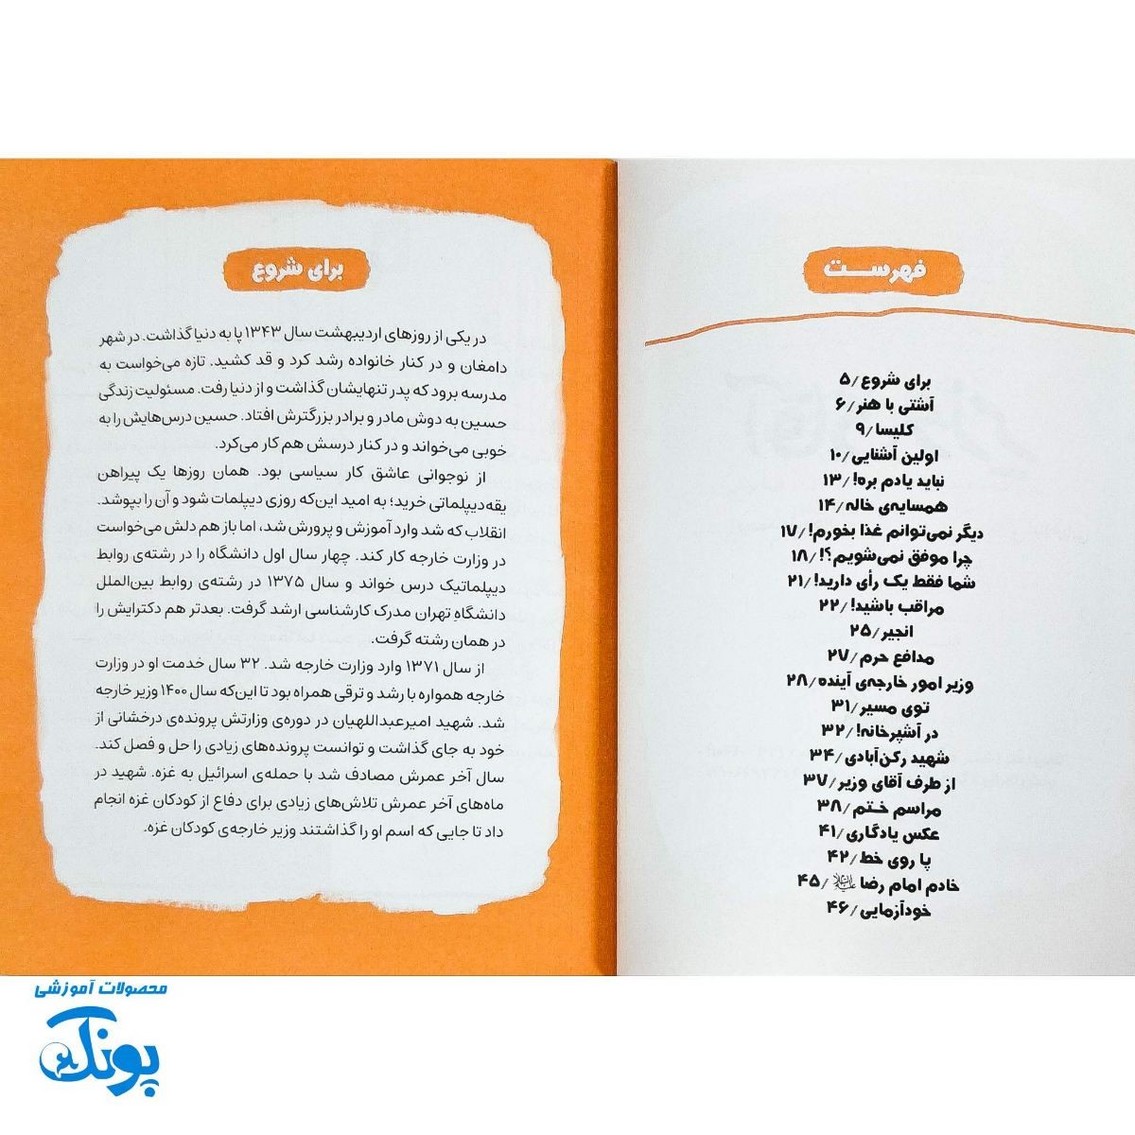 فهرست
برای شروع /۵
آشتی با هنر /۶
کلیسا /۹
اولین آشنایی /۱۰
نباید یادم بره! /۱۳
همسایه‌ی خاله /۱۴
دیگر نمی‌توانم غذا بخورم! /۱۷
چرا موفق نمی‌شویم؟! /۱۸
شما فقط یک رأی دارید! /۲۱
مراقب باشید! /۲۲
انجیر /۲۵
مدافع حرم /۲۷
وزیر امور خارجه‌ی آینده /۲۸
توی مسیر /۳۱
در آشپزخانه! /۳۲
شهید رکن‌آبادی /۳۴
از طرف آقای وزیر /۳۷
مراسم ختم /۳۸
عکس یادگاری /۴۱
پا روی خط /۴۲
خادم امام رضا علیه‌السلام /۴۵
خودآزمایی /۴۶
برای شروع
در یکی از روزهای اردیبهشت سال ۱۳۴۳ پا به دنیا گذاشت. در شهر
دامغان و در کنار خانواده رشد کرد و قد کشید. تازه می‌خواست به
مدرسه برود که پدر تنهایشان گذاشت و از دنیا رفت. مسئولیت زندگی
حسین به دوش مادر و برادر بزرگترش افتاد. حسین درس‌هایش را به
خوبی می‌خواند و در کنار درسش هم کار می‌کرد.
از نوجوانی عاشق کار سیاسی بود. همان روزها یک پیراهن
یقه‌دیپلماتی خرید؛ به امید این‌که روزی دیپلمات شود و آن را بپوشد.
انقلاب که شد وارد آموزش و پرورش شد، اما باز هم دلش می‌خواست
در وزارت خارجه کار کند. چهار سال اول دانشگاه را در رشته‌ی روابط
دیپلماتیک درس خواند و سال ۱۳۷۵ در رشته‌ی روابط بین‌الملل
دانشگاهِ تهران مدرک کارشناسی ارشد گرفت. بعدتر هم دکترایش را
در همان رشته گرفت.
از سال ۱۳۷۱ وارد وزارت خارجه شد. ۳۲ سال خدمت او در وزارت
خارجه همواره با رشد و ترقی همراه بود تا این‌که سال ۱۴۰۰ وزیر خارجه
شد. شهید امیرعبداللهیان در دوره‌ی وزارتش پرونده‌ی درخشانی از
خود به جای گذاشت و توانست پرونده‌های زیادی را حل و فصل کند.
سال آخر عمرش مصادف شد با حمله‌ی اسرائیل به غزه. شهید در
ماه‌های آخر عمرش تلاش‌های زیادی برای دفاع از کودکان غزه انجام
داد تا جایی که اسم او را گذاشتند وزیر خارجه‌ی کودکان غزه.
محصولات آموزشی
پونک